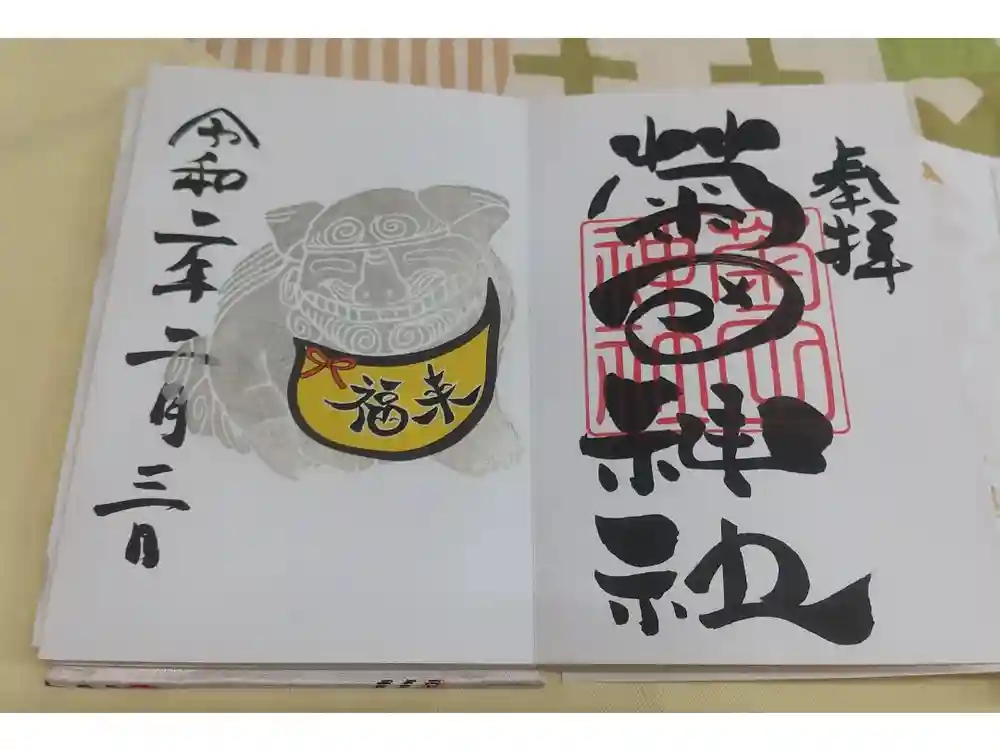 奉拝
菊田神社
菊田
神社
来福
令和二年二月三日